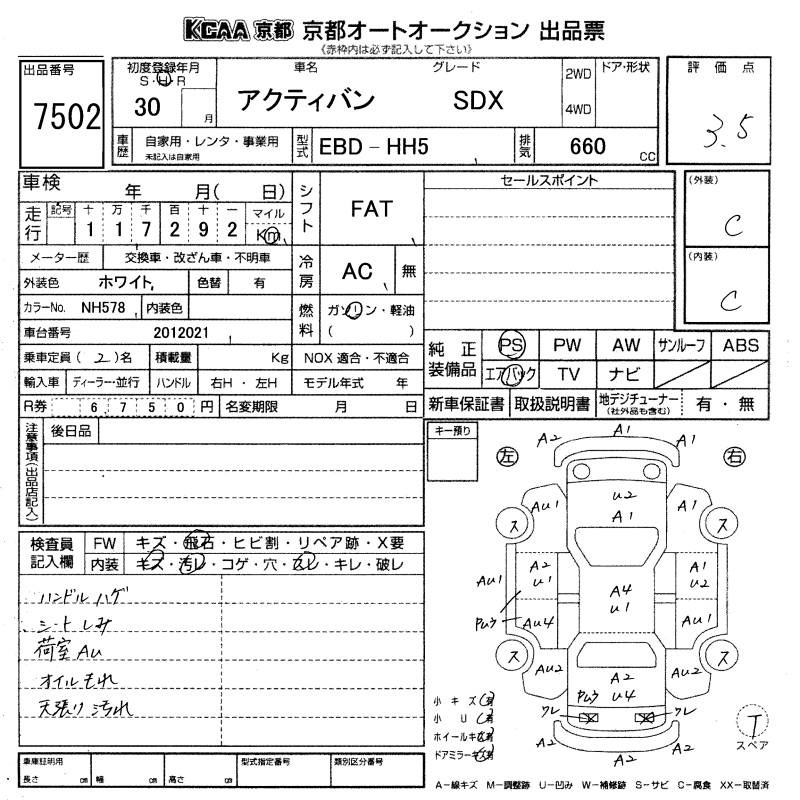 KCAA 京都 京都オートオークション 出品票
《赤枠内は必ず記入して下さい》
出品番号
7502
初度登録年月
S・H・R
30 月
車名 グレード
アクティバン SDX
2WD
4WD
ドア・形状
評価点
3.5
車歴
自家用・レンタ・事業用
未記入は自家用
型式
EBD-HH5
排気
660 CC
車検 年 月( 日)
走行
記号 十 万 千 百 十 一 マイル
1 1 7 2 9 2 Km
メーター歴 交換車・改ざん車・不明車
外装色 ホワイト 色替 有
カラーNo. NH578 内装色
車台番号 2012021
乗車定員(2)名 積載量 Kg NOX 適合・不適合
輸入車 ディーラー・並行 ハンドル 右H・左H モデル年式 年
R券 6,750 円 名変期限 月 日
シフト
FAT
冷房
AC 無
燃料
ガソリン・軽油
( )
セールスポイント
(外装)
C
(内装)
C
純正装備品
PS PW AW サンルーフ ABS
エアバック TV ナビ
新車保証書 取扱説明書 地デジチューナー 有・無
(社外品も含む)
注意事項(出品店記入)
後日品
キー預り
検査員記入欄
FW キズ・飛石・ヒビ割・リペア跡・X要
内装 キズ・汚レ・コゲ・穴・スレ・キレ・破レ
ハンドル ハゲ
シート しみ
荷室 AU
オイルもれ
天張り 汚れ
左 右
A2 A1 A2
U2
A1
AU1 A1
ス ス
AU1
A2
U1
A4
U1
A1
U2
AU1
PUウ
AU4 AU1
ス ス
AU2 AU2
A2
PUウ U4
ワレ ワレ
A2 A2
小キズ 有
小U 有
ホイールキズ有
ドアミラーキズ有
T
スペア
車庫証明用
長さ cm 幅 cm 高さ cm
型式指定番号 類別区分番号
A-線キズ M-調整跡 U-凹み W-補修跡 S-サビ C-腐食 XX-取替済